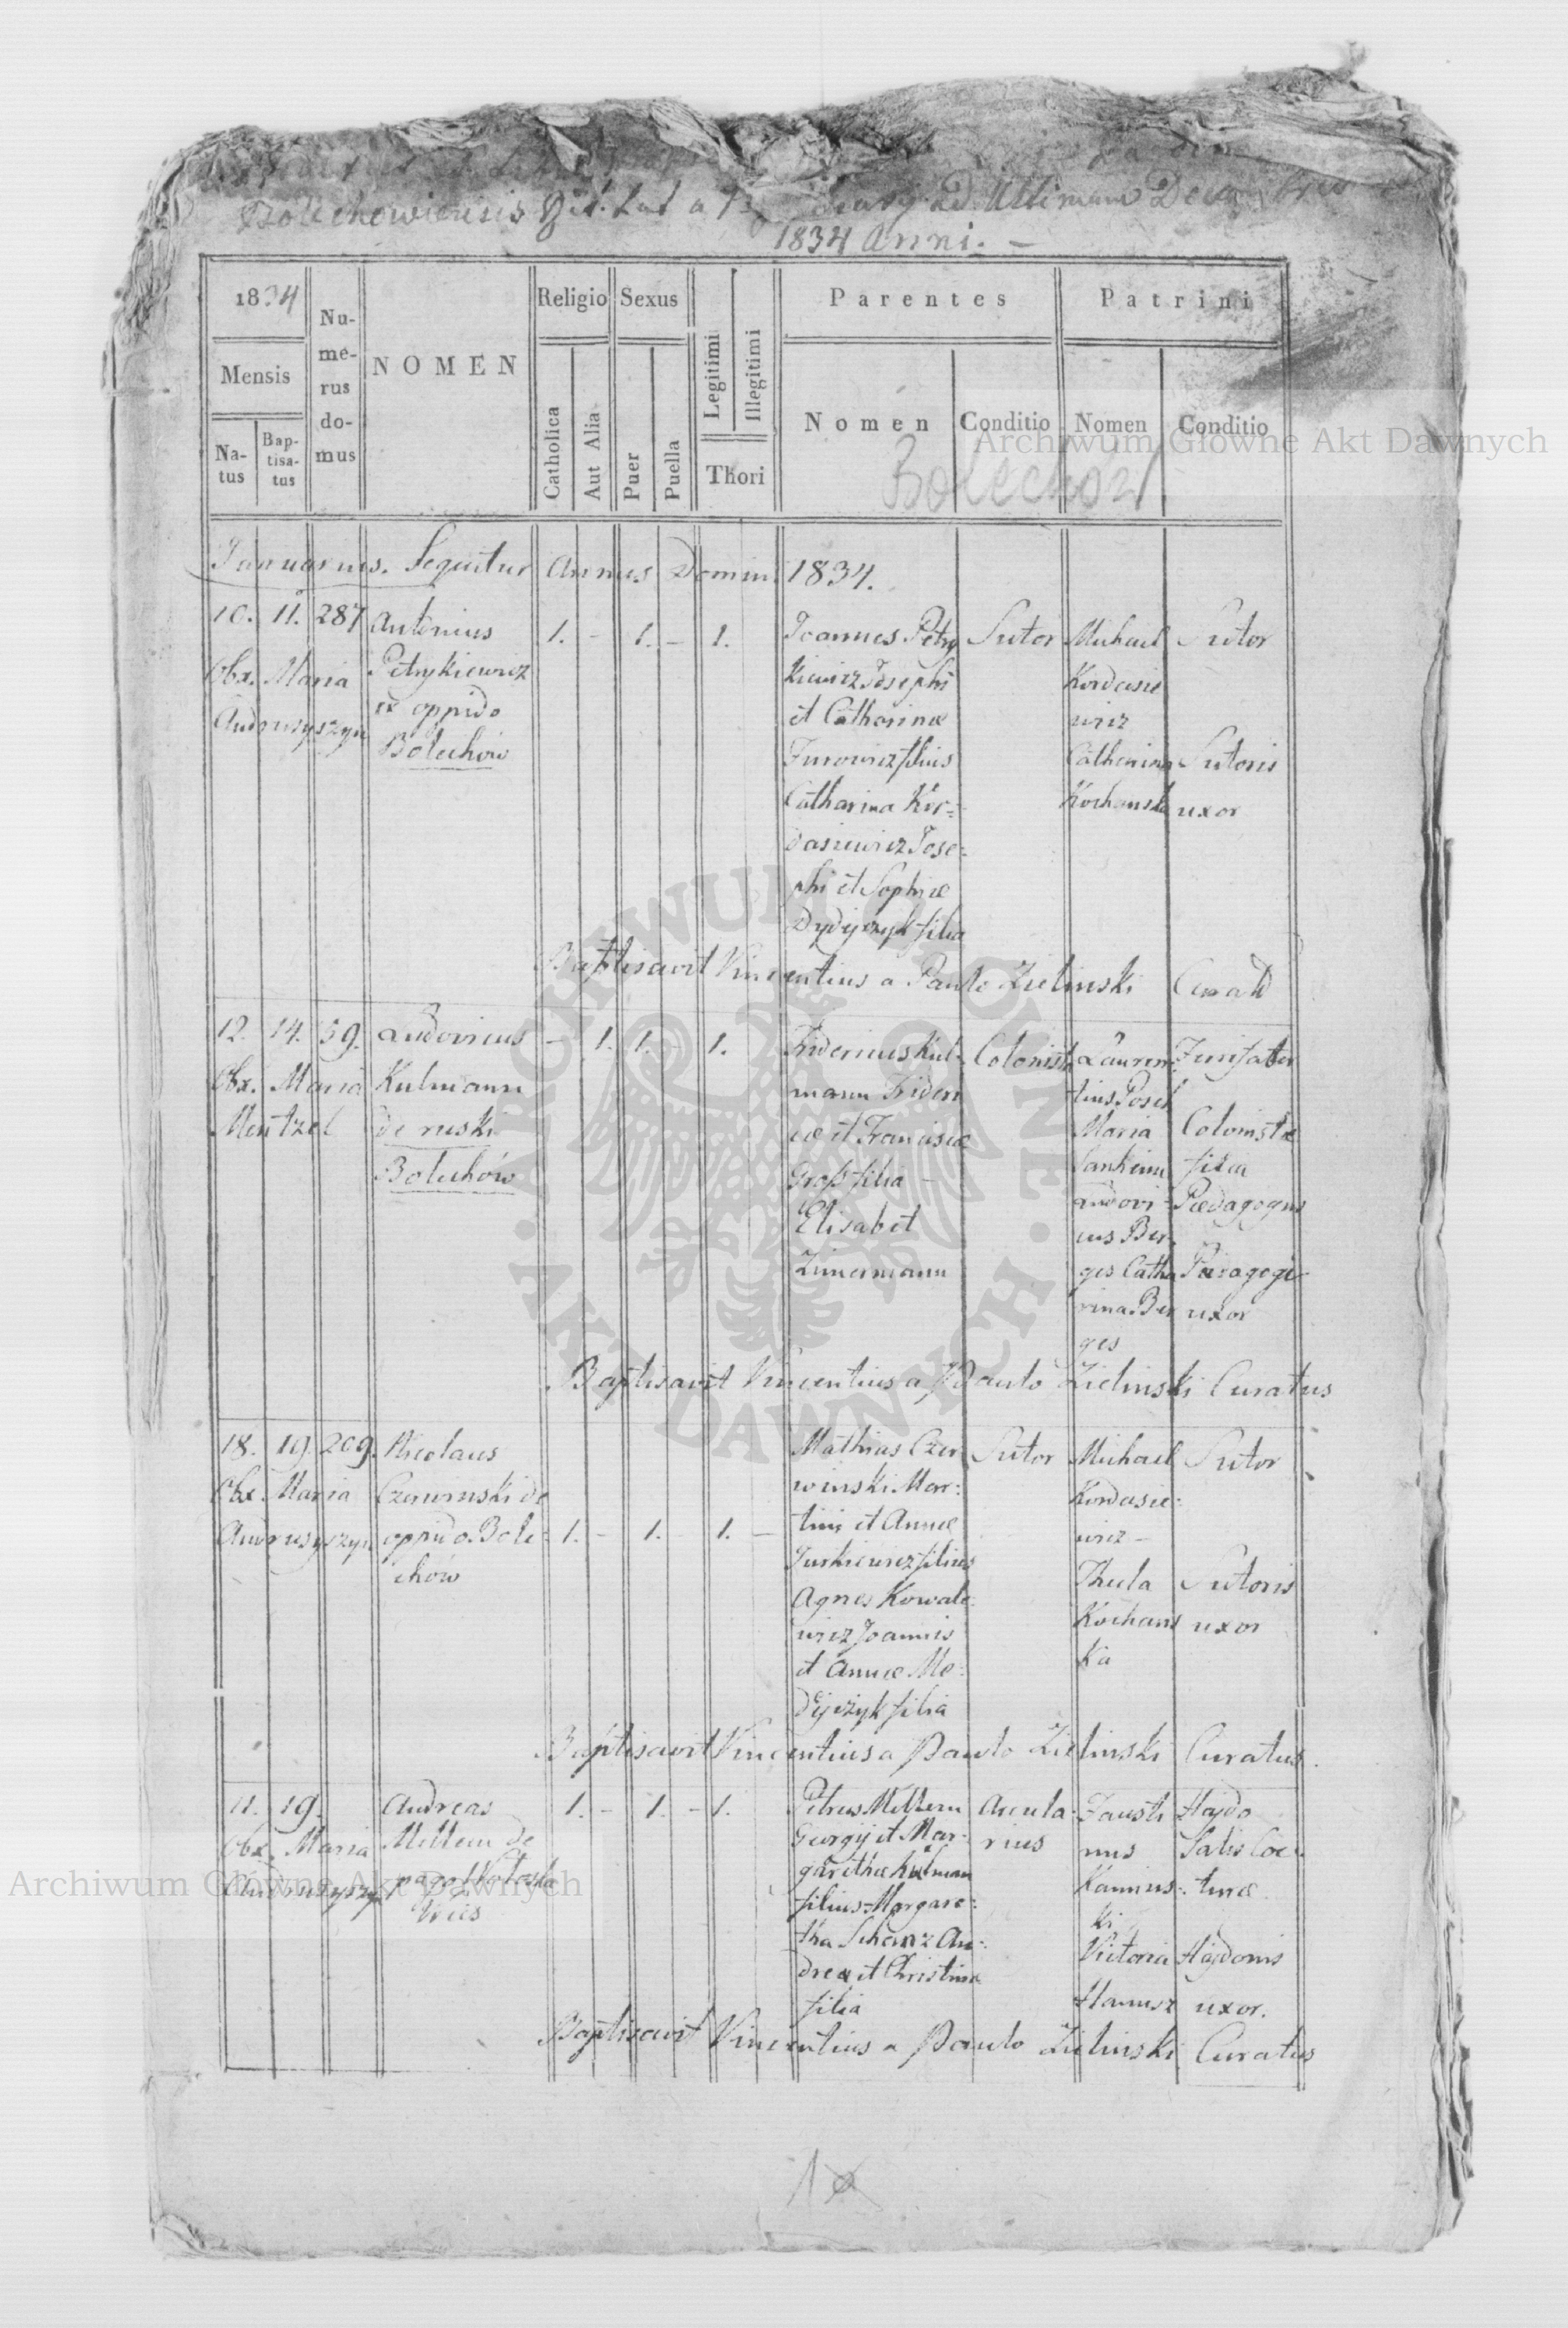 Bolechowiensis Rit. Lat a 1 ad Ultimam Decembris
1834 Anni. —
1834
Mensis
Natus
Baptisatus
Numerus domus
NOMEN
Religio
Catholica
Aut Alia
Sexus
Puer
Puella
Legitimi
Illegitimi
Thori
Parentes
Nomen
Conditio
Patrini
Nomen
Conditio
Bolechów
Januarius. Sequitur Annus Domini 1834.
10. 11. 287
Obx. Maria
Andrusyszyn
Antonius
Petrykiewicz
ex oppido
Bolechów
1. – 1. – 1.
Joannes Petry
kiewicz Josephi
et Catharinæ
Jurowicz filius
Catharina Kor=
dasiewicz Jose=
phi et Sophiæ
Dydyczyk filia
Sutor
Michael
Kordasie
wicz
Catharina
Kochanska
Sutor
Sutoris
uxor
Baptisavit Vincentius a Paulo Zielinski
12. 14. 59.
Obx. Maria
Mentzel
Ludovicus
Kulmann
de ruski
Bolechów
– 1. 1. – 1.
Fridericus Kul-
mann Frideri
cæ et Franciscæ
Groß filia –
Elisabet
Zimermann
Colonista
Lauren=
tius Posel
Maria
Ludovi=
cus Ber=
ges Catha
rina Ber
ges
Colonistæ
filia
Pædagogus
Pædagogi
uxor
Baptisavit Vincentius a Paulo Zielinski Curatus
18. 19. 209.
Obx. Maria
Andrusyszyn
Nicolaus
Czerwinski de
oppido Bole=
chów
1. – 1. 1. –
Mathias Czer
winski Mar=
tini et Annæ
Jurkiewicz filius
Agnes Kowale
wicz Joannis
et Annæ Me=
dyczyk filia
Sutor
Michael
Kordasie=
wicz –
Thecla
Kochans
ka
Sutor
Sutoris
uxor
Baptisavit Vincentius a Paulo Zielinski Curatus.
11. 19.
Obx. Maria
Andrusyszyn
Andreas
de
pago Wołoska
Wies
1. – 1. – 1.
Petrus
Georgij et Mar=
garethæ Kulman
filius Margare=
tha Schanz An=
dreæ et Christinæ
filia
Fausti
nus
Kamins=
ki
Victoria
Hanusz
Hajdo
Salis Coc=
turæ
Hajdonis
uxor.
Baptisavit Vincentius a Paulo Zielinski Curatus
Archiwum Główne Akt Dawnych
ARCHIWUM GŁÓWNE · AKT DAWNYCH ·
Archiwum Główne Akt Dawnych